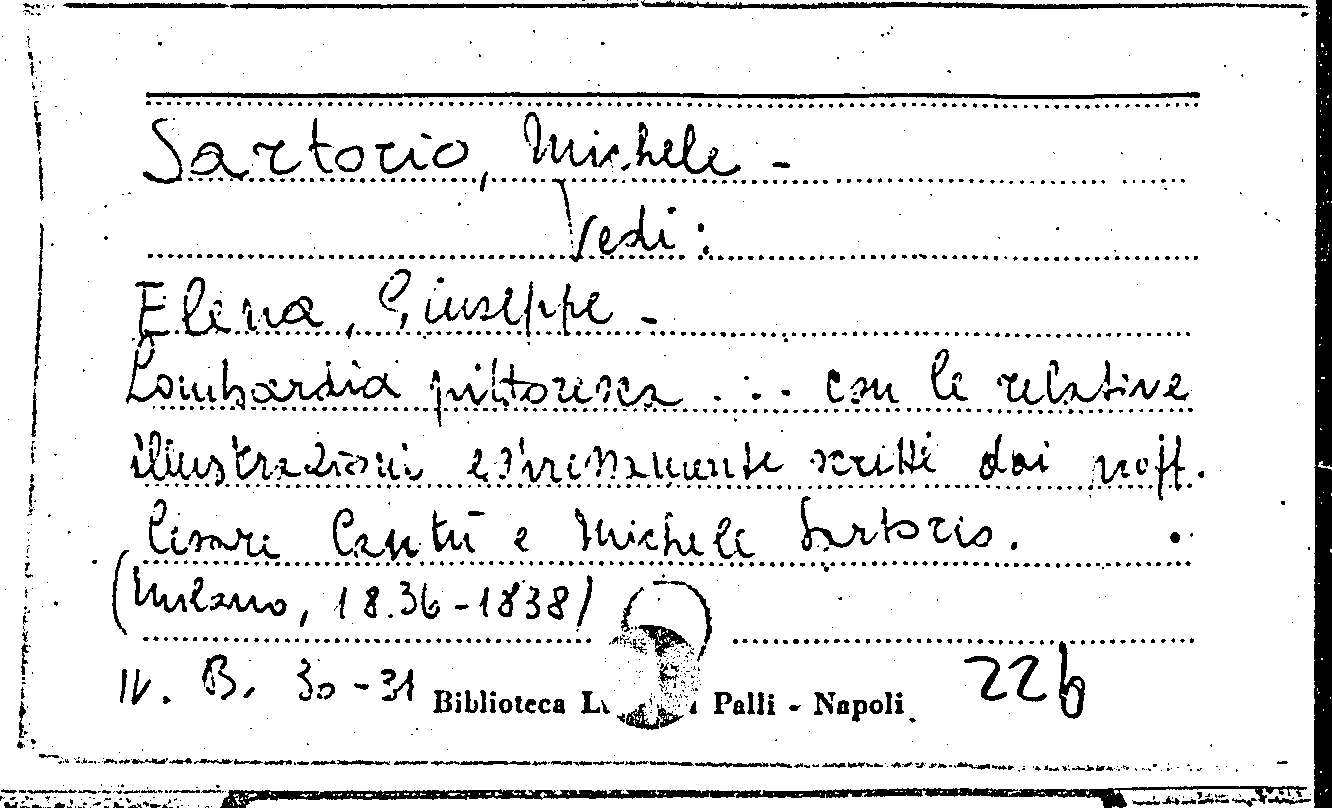 Sartorio, Michele -
Vedi:
Elena, Giuseppe -
Lombardia pittoresca . . . con le relative
illustrazioni espressamente scritte dai proff.
Cesare Cantù e Michele Sartorio.
(Milano, 1836-1838)
IV. B. 30-31 Biblioteca Palli - Napoli 226